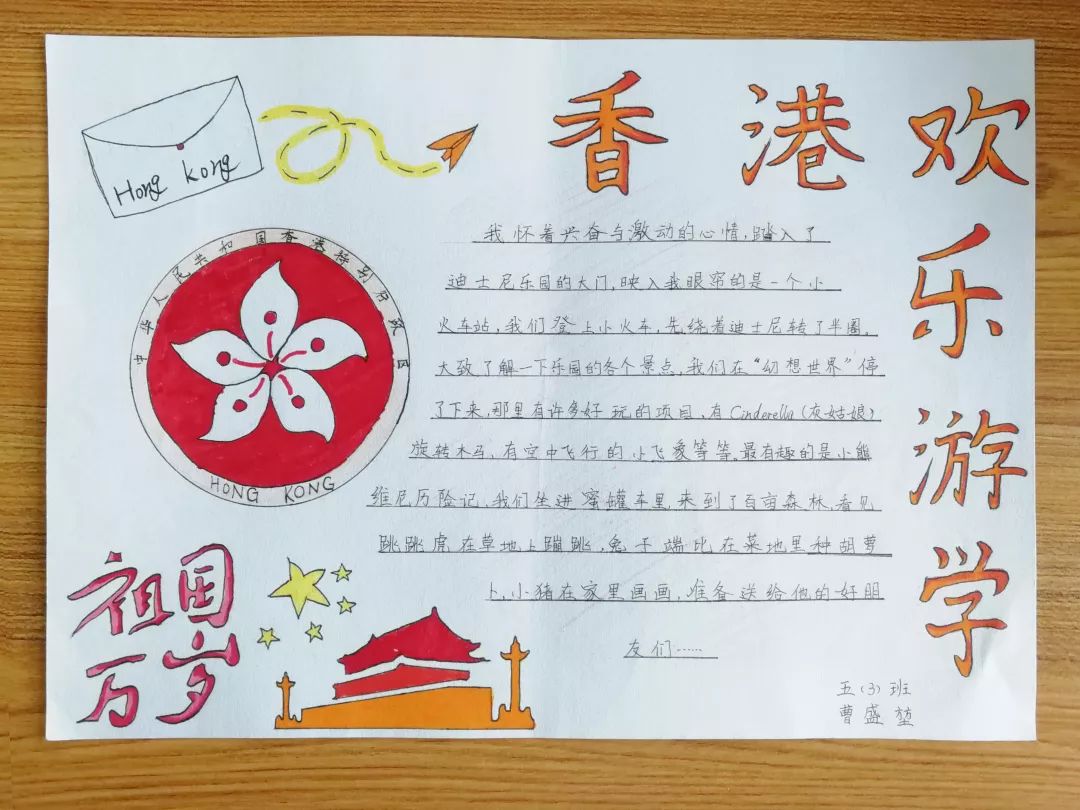 香港欢
乐
游
学
Hong Kong
中华人民共和国香港特别行政区
HONG KONG
我怀着兴奋与激动的心情,踏入了
迪士尼乐园的大门,映入我眼帘的是一个小
火车站,我们登上小火车,先绕着迪士尼转了半圈。
大致了解一下乐园的各个景点,我们在“幻想世界”停
了下来,那里有许多好玩的项目,有Cinderella(灰姑娘)
旋转木马,有空中飞行的小飞象等等。最有趣的是小熊
维尼历险记,我们坐进蜜罐车里,来到了百亩森林,看见
跳跳虎在草地上蹦跳,兔子瑞比在菜地里种胡萝
卜,小猪在家里画画,准备送给他的好朋
友们……
祖国
万岁
五(3)班
曹盛堃